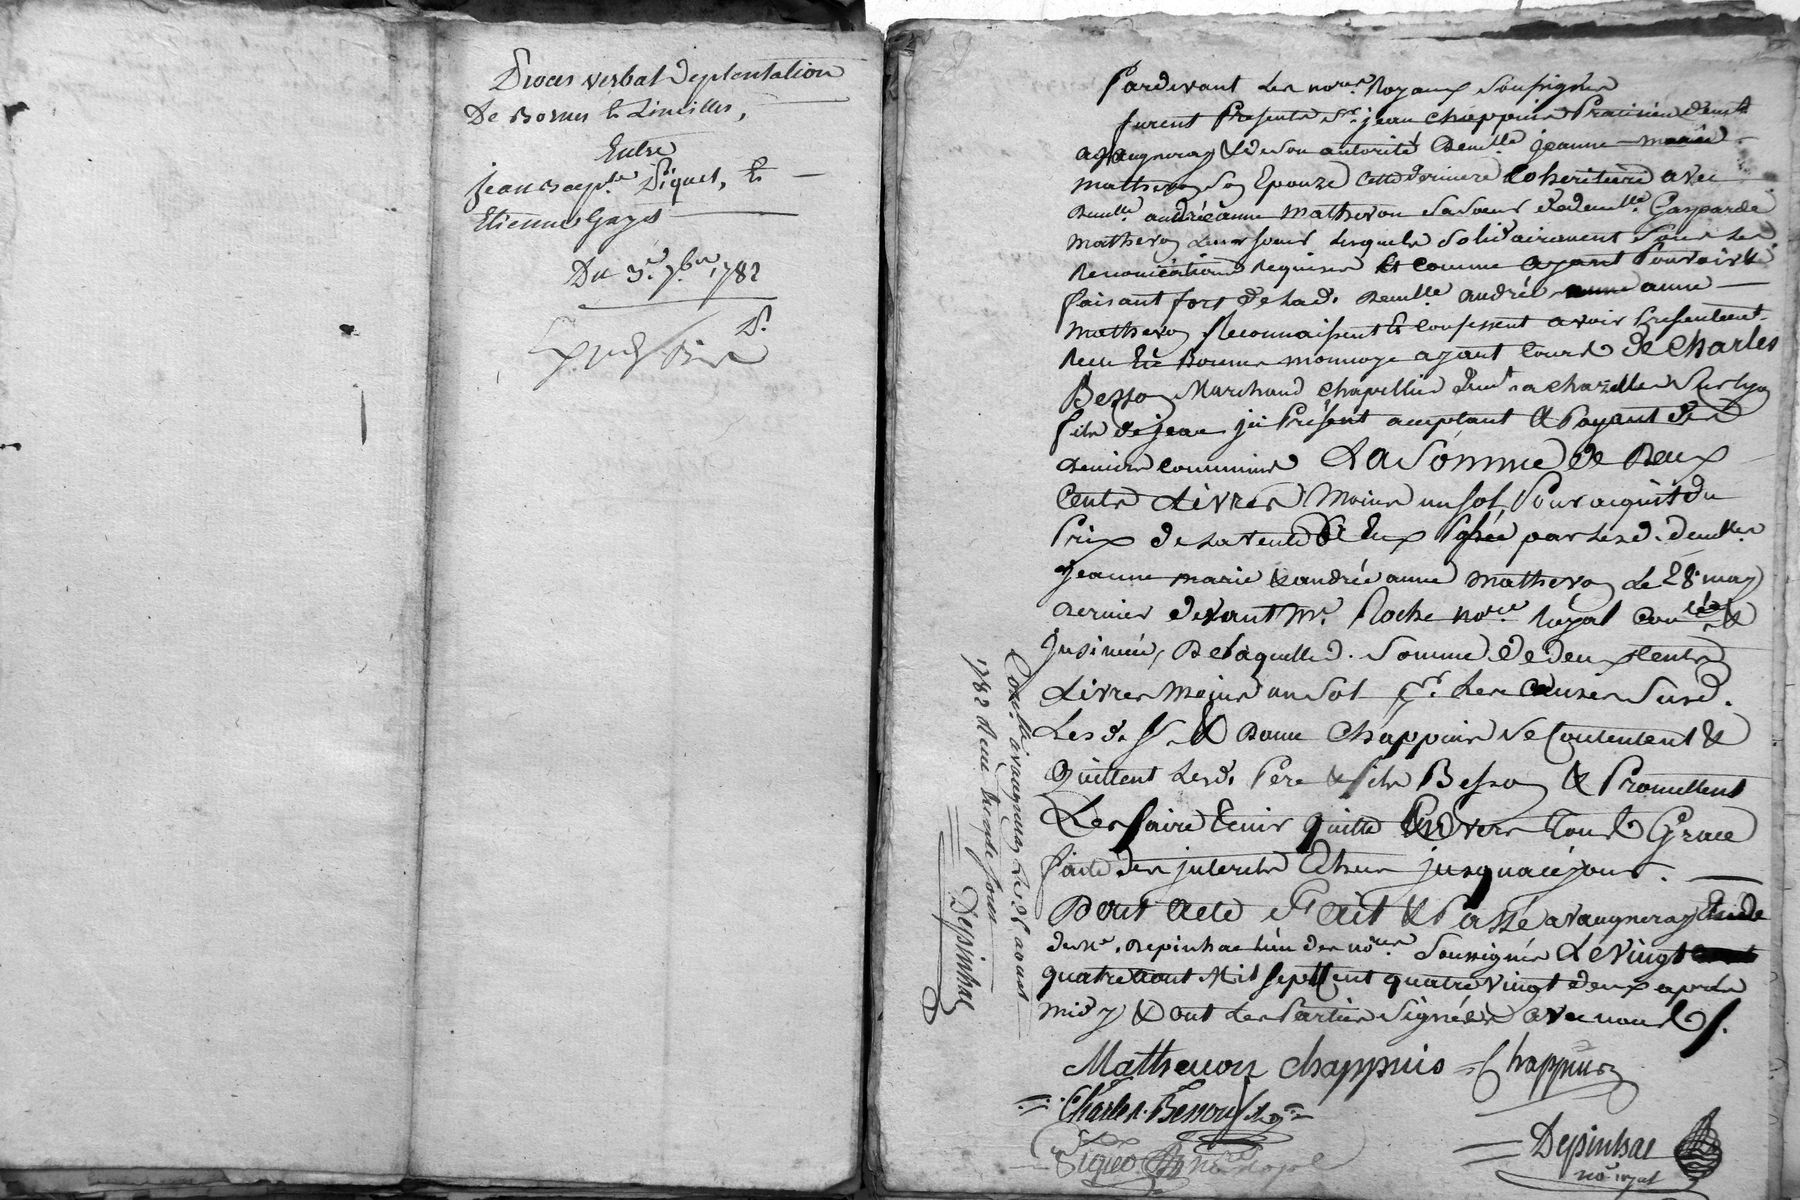 Proces verbal deplantation
De Bornes & Limittes,
Entre
jean bapte. Piquet, &
Etienne Gayet
Du 3e. 7bre. 1782
Pardevant les nores. Royaux soussignés
furent Presents Sr. jean Chappuis Praticien demt.
a vaugneray & de son autorité demlle. jeanne marie
matheron son Epouze cette derniere coheritiere avec
demlle. andréanne matheron sa soeur de demlle. Gasparde
matheron leur soeur lesquels solidairement sous les
renonciations requises et comme ayant Pouvoir &
faisant fort de lad. demlle. andrée anne
matheron Reconnaissent & confessent avoir Presentement
Recu en bonne monnoye ayant cours de Charles
Besson Marchand chapellier demt. a chazelles sur lyon
fils de jean ici Présent acceptant & Payant de
deniers communs La Somme de Deux
Cents Livres moins un sol, Pour acquit du
Prix de la vente à eux Passée par lesd. demlles.
jeanne marie & andrée anne matheron le 28 may
dernier devant Me. Roche nore. Royal conllé. &
Insinué, De laquelle d. Somme de deux Cents
Livres moins un sol pr. les causes susd.
Les d. Sr. & Dame Chappuis se Contentent &
quittent lesd. Pere & fils Besson & Promettent
Les faire tenir quitte Envers tous Grace
faite des interets Echus jusqua ce jour.
Dont acte Fait & Passé a vaugneray Etude
de Me. Depinhac lun des nores. Soussignés Le vingt
quatre aout Mil sept Cent quatre vingt deux après
midy & ont les Parties Signées avec nous
Matheuon chappuis Chappuis
Charles. Besson
Depinhac
nore. royal
Conllé. à vaugneray le 31 aoust
1782 Recu
Depinhac